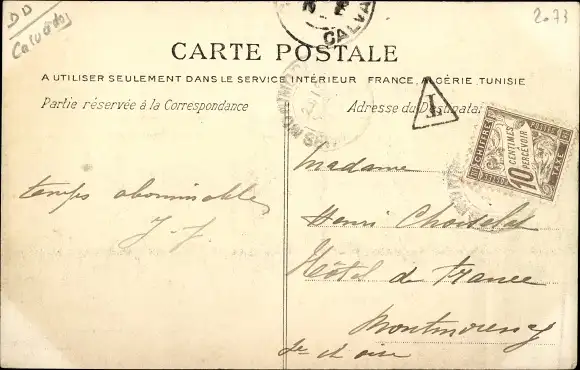 DD
Calvados
2073
CALVA
CARTE POSTALE
A UTILISER SEULEMENT DANS LE SERVICE INTÉRIEUR FRANCE, ALGÉRIE, TUNISIE
Partie réservée à la Correspondance
Adresse du Destinatai
T
CHIFFRE
POSTES
TAXE
10 CENTIMES À PERCEVOIR
temps abominable
J. J.
Madame
Henri
Hôtel de France
Montmorency
Se et oise